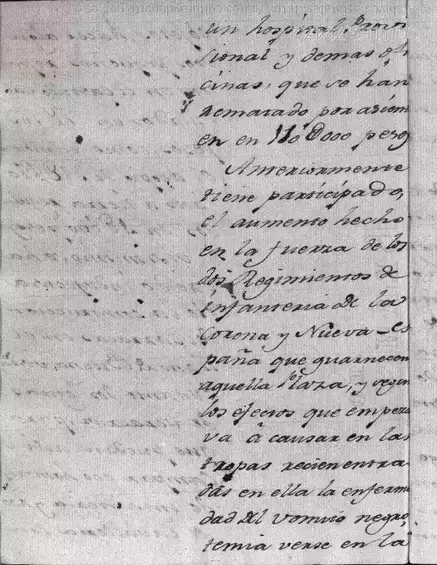 un hospital Provi
sional y demas ofi
cinas, que se han
rematado por asien
en en 110 000 pesos
Anteriormente
tiene participado,
el aumento hecho
en la fuerza de los
dos Regimientos de
Infanteria de la
Corona y Nueva Es
paña que guarnecen
aquella Plaza, y segun
los efectos que empeza
va â causar en las
tropas recien entra
das en ella la enferme
dad del vomito negro,
temia verse en la